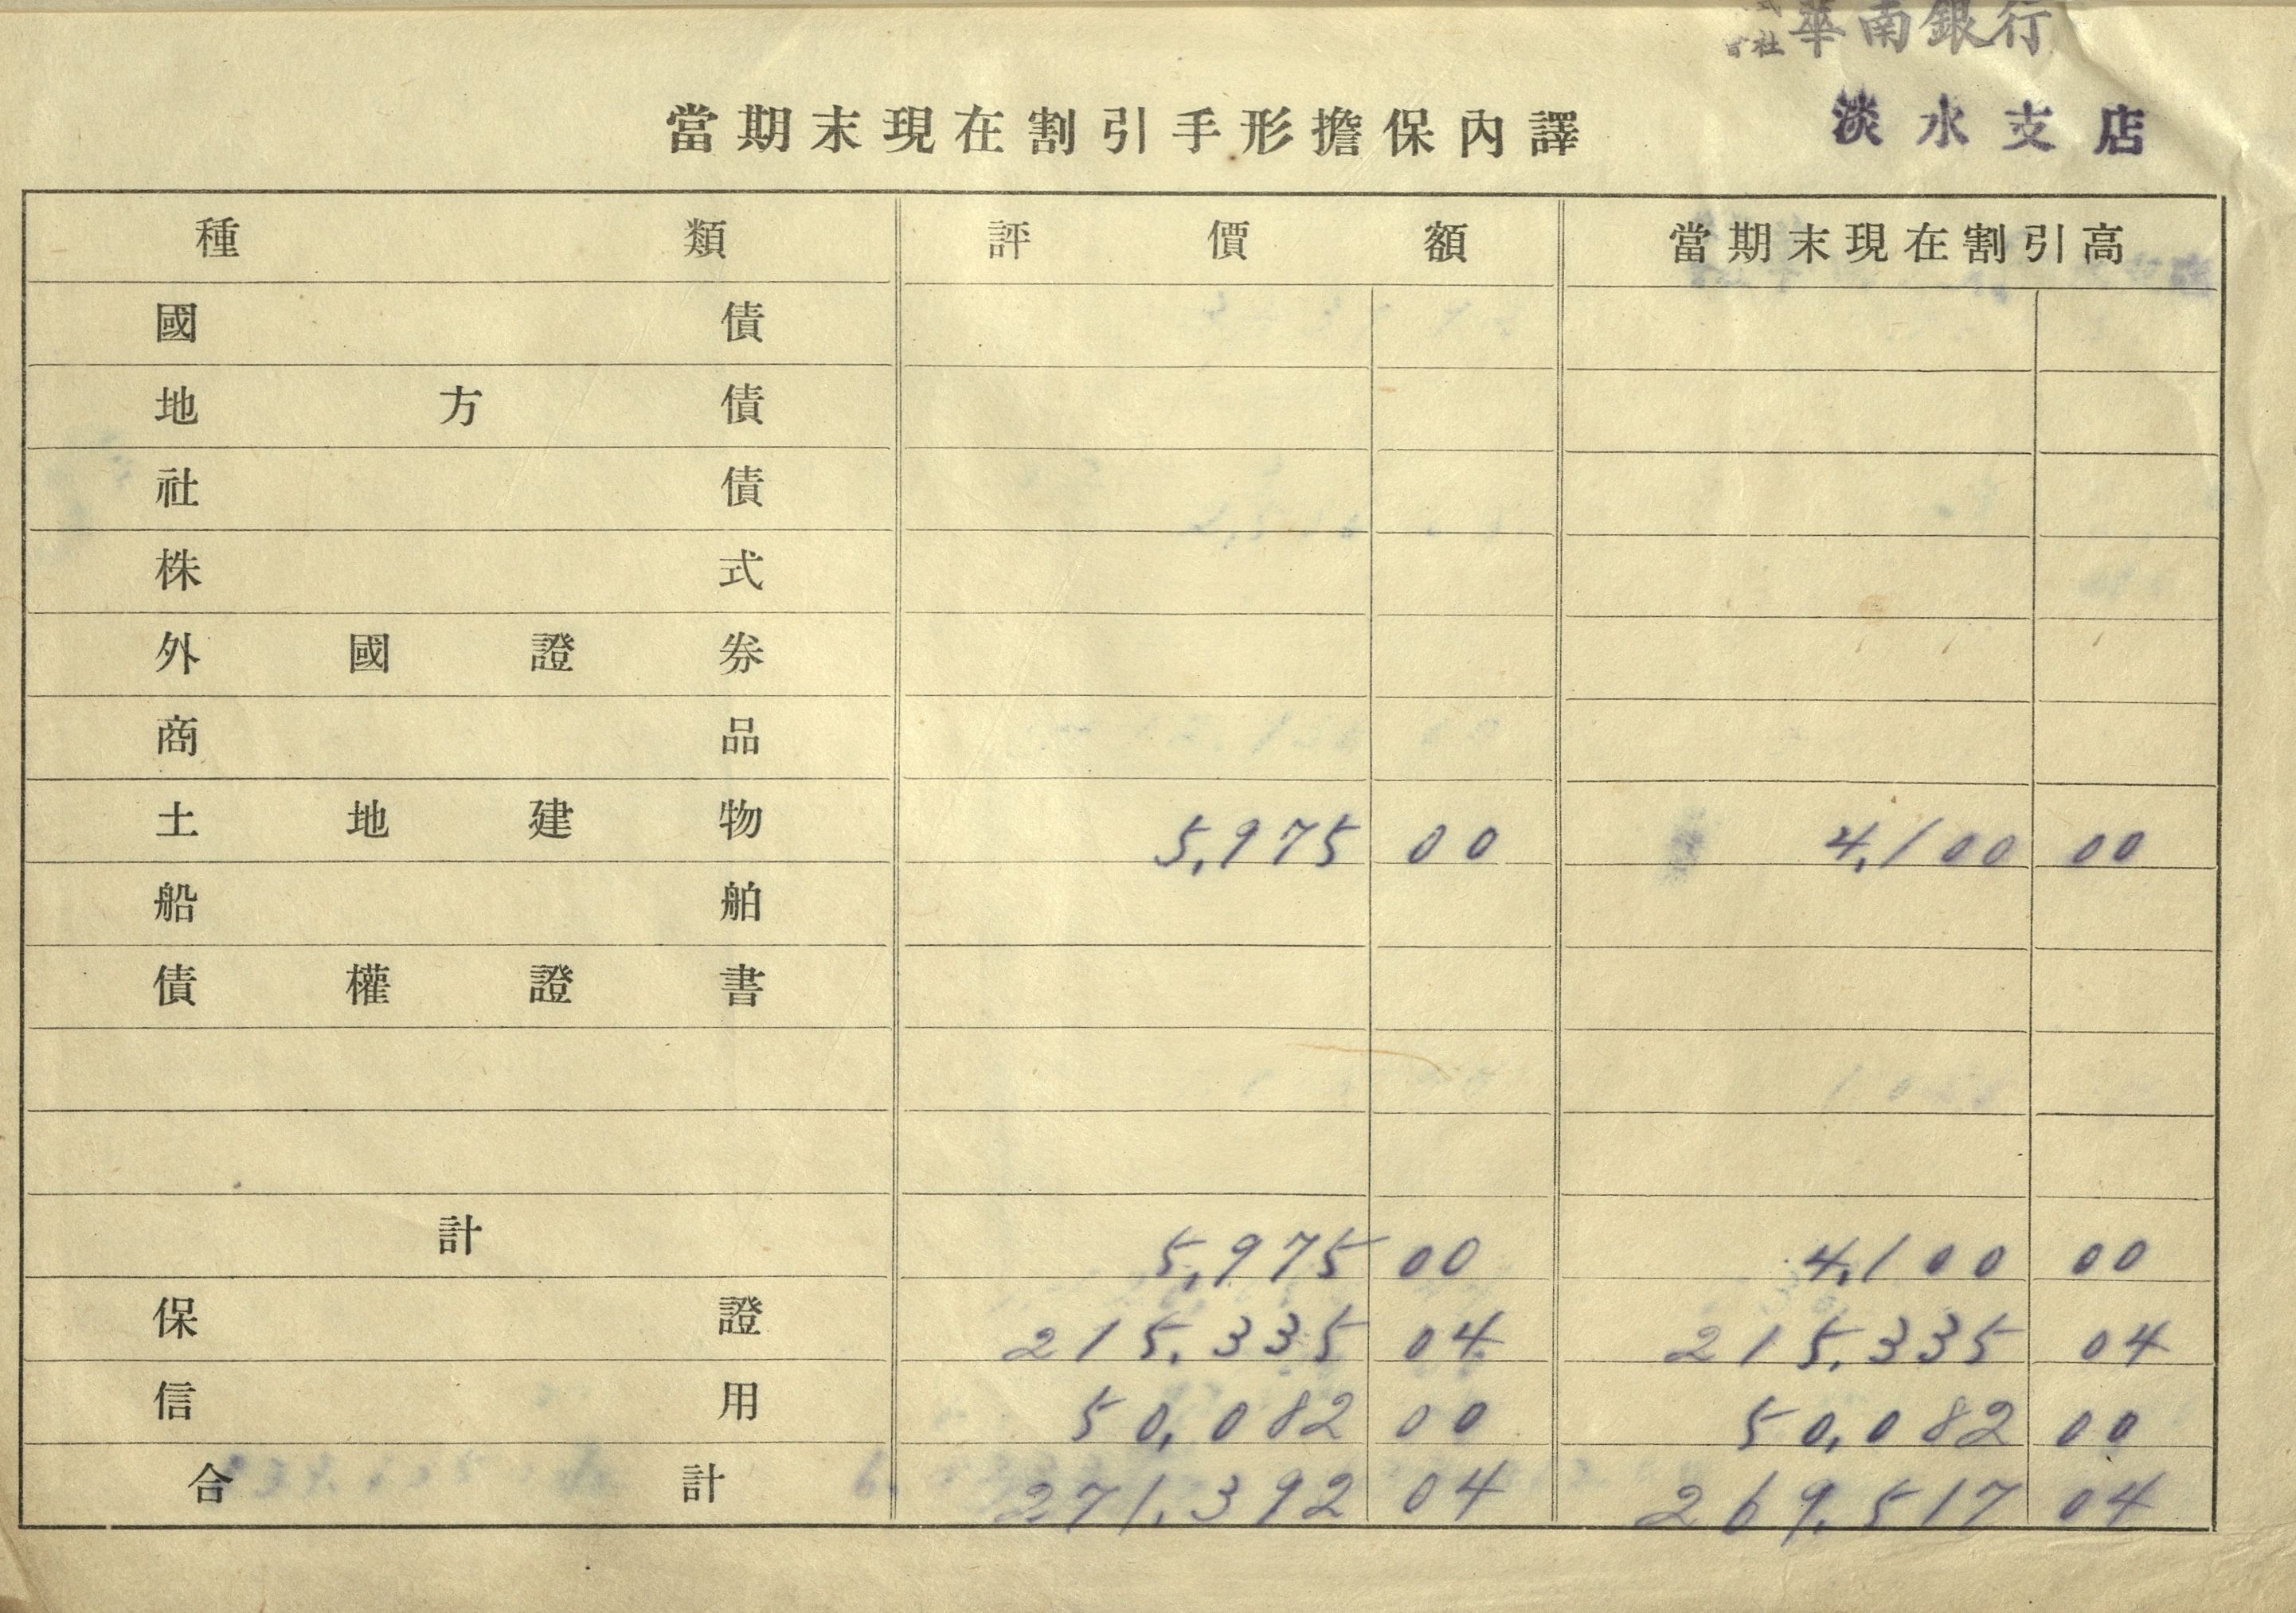 會社 華南銀行
淡水支店
當期末現在割引手形擔保內譯
種類 評價額 當期末現在割引高
國債
地方債
社債
株式
外國證券
商品
土地建物 5,975 00 4,100 00
船舶
債權證書
計 5,975 00 4,100 00
保證 215,335 04 215,335 04
信用 50,082 00 50,082 00
合計 271,392 04 269,517 04